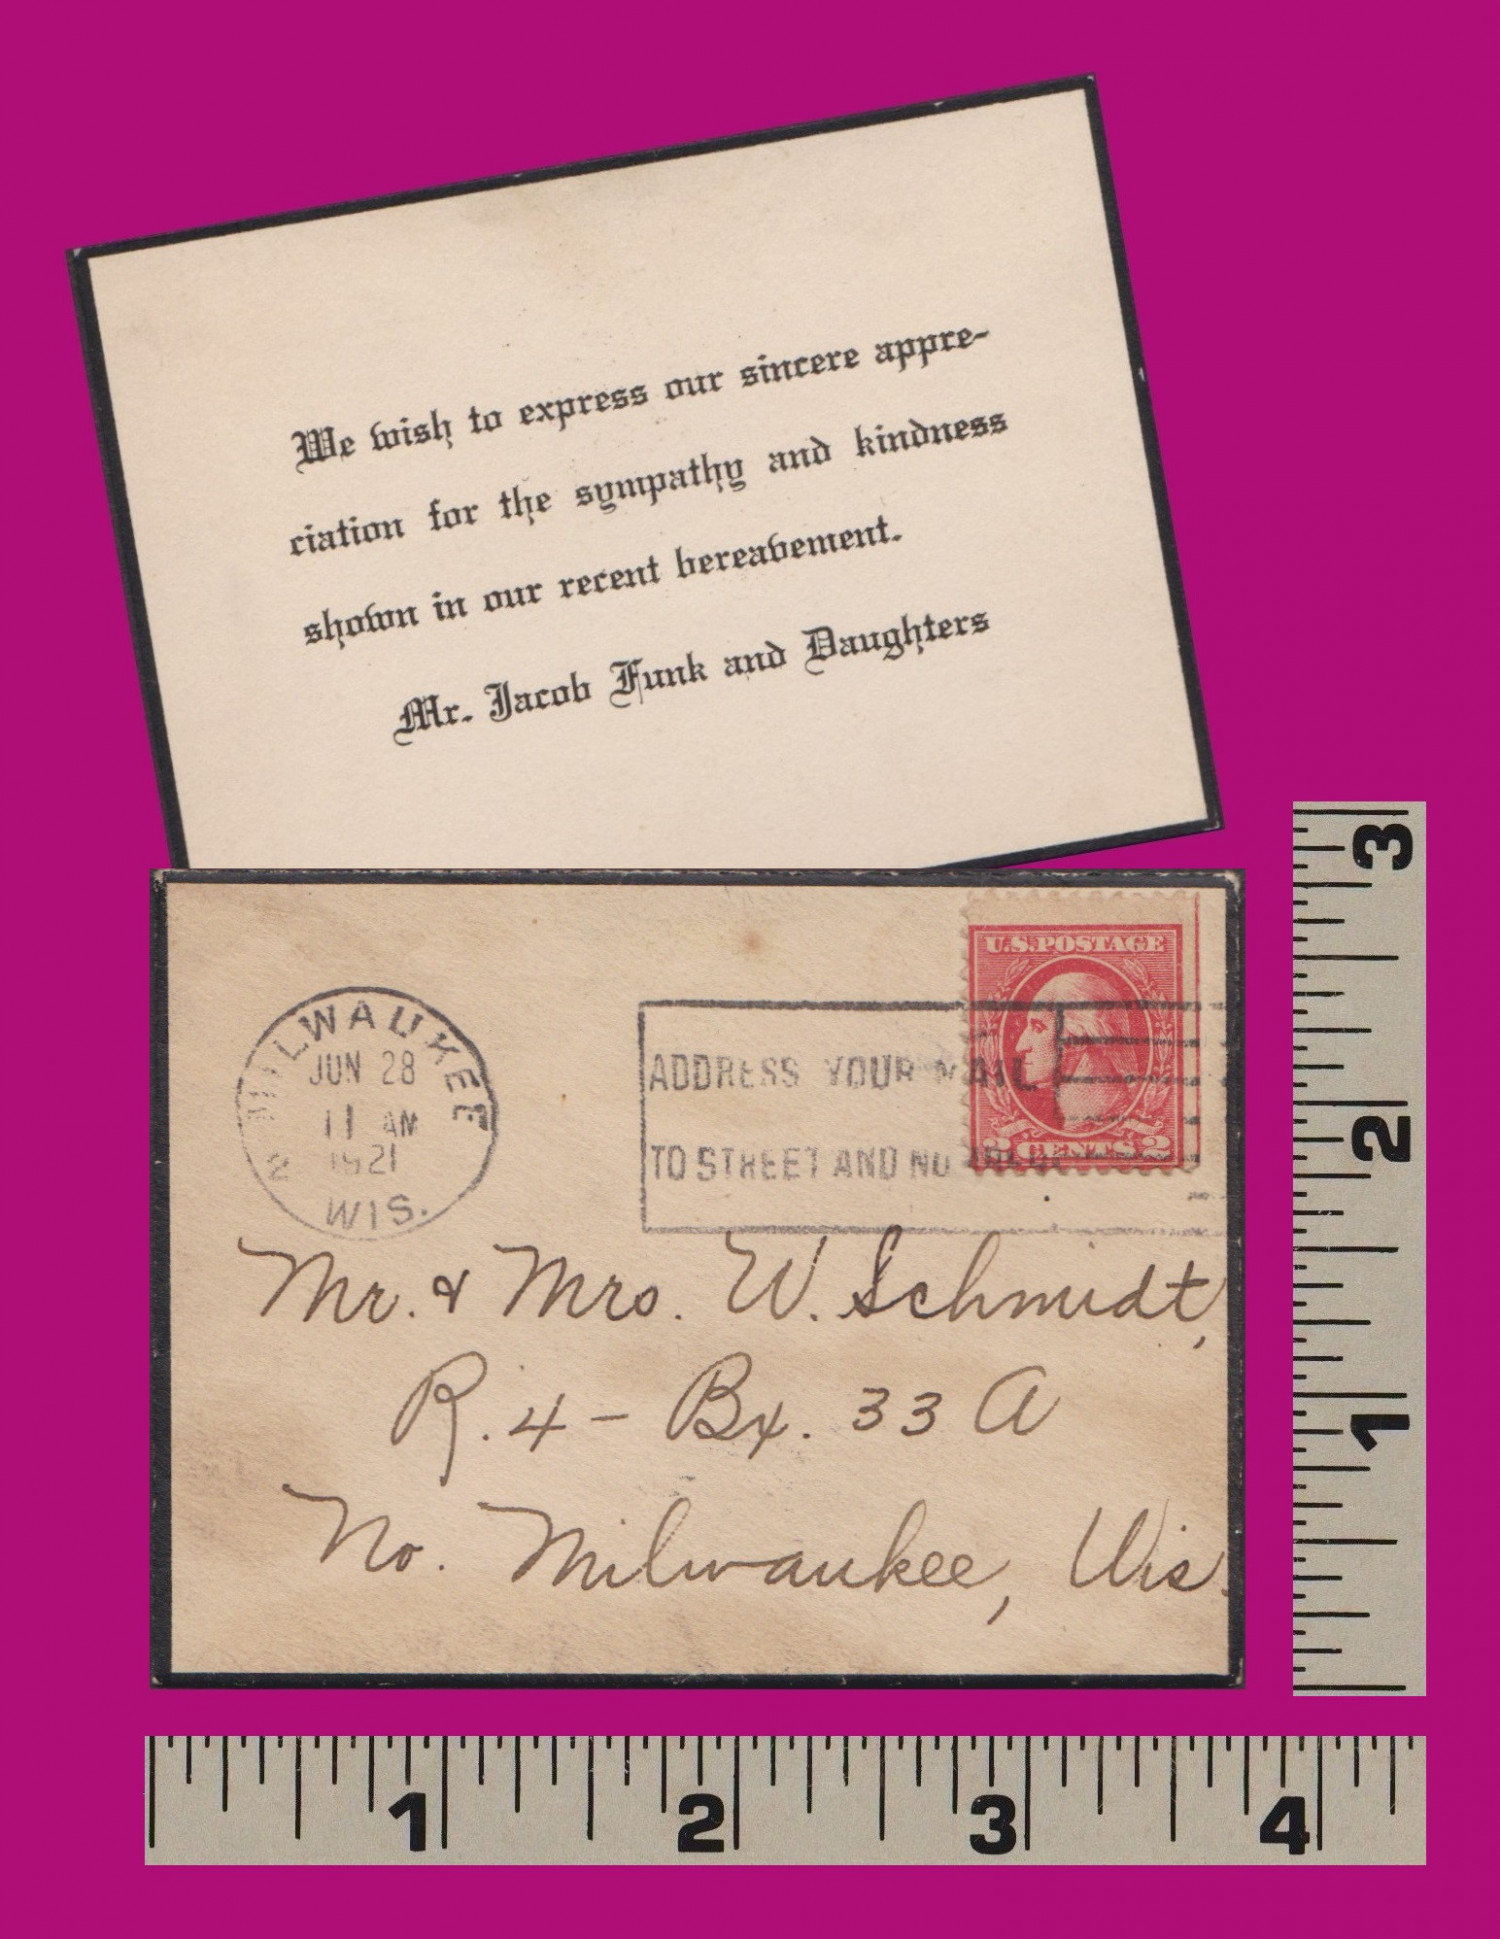 We wish to express our sincere appre-
ciation for the sympathy and kindness
shown in our recent bereavement.
Mr. Jacob Funk and Daughters
MILWAUKEE
JUN 28
11 AM
1921
2
WIS.
ADDRESS YOUR MAIL
TO STREET AND NO
U.S. POSTAGE
2 CENTS 2
Mr. & Mrs. W. Schmidt,
R. 4 - Bx. 33 A
No. Milwaukee, Wis.
3
2
1
1 2 3 4